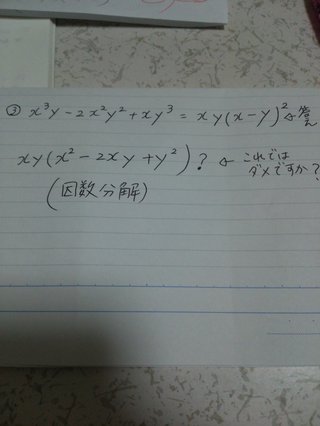 ③ x³y-2x²y²+xy³=xy(x-y)² ←答え
xy(x²-2xy+y²)? ← これでは
ダメですか?
(因数分解)